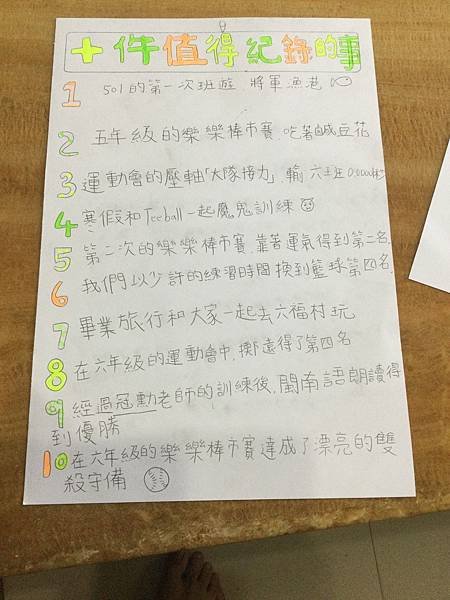 十件值得紀錄的事
1 501的第一次班遊 將軍漁港
2 五年級的樂樂棒市賽 吃著鹹豆花
3 運動會的壓軸「大隊接力」輸 六班 0.0001秒
4 寒假和Teeball一起魔鬼訓練
5 第二次的樂樂棒市賽,靠著運氣得到第二名
6 我們以少許的練習時間換到籃球第四名
7 畢業旅行和大家一起去六福村玩
8 在六年級的運動會中,擲遠得了第四名
9 經過冠勳老師的訓練後,閩南語朗讀得
到優勝
10 在六年級的樂樂棒市賽達成了漂亮的雙
殺守備